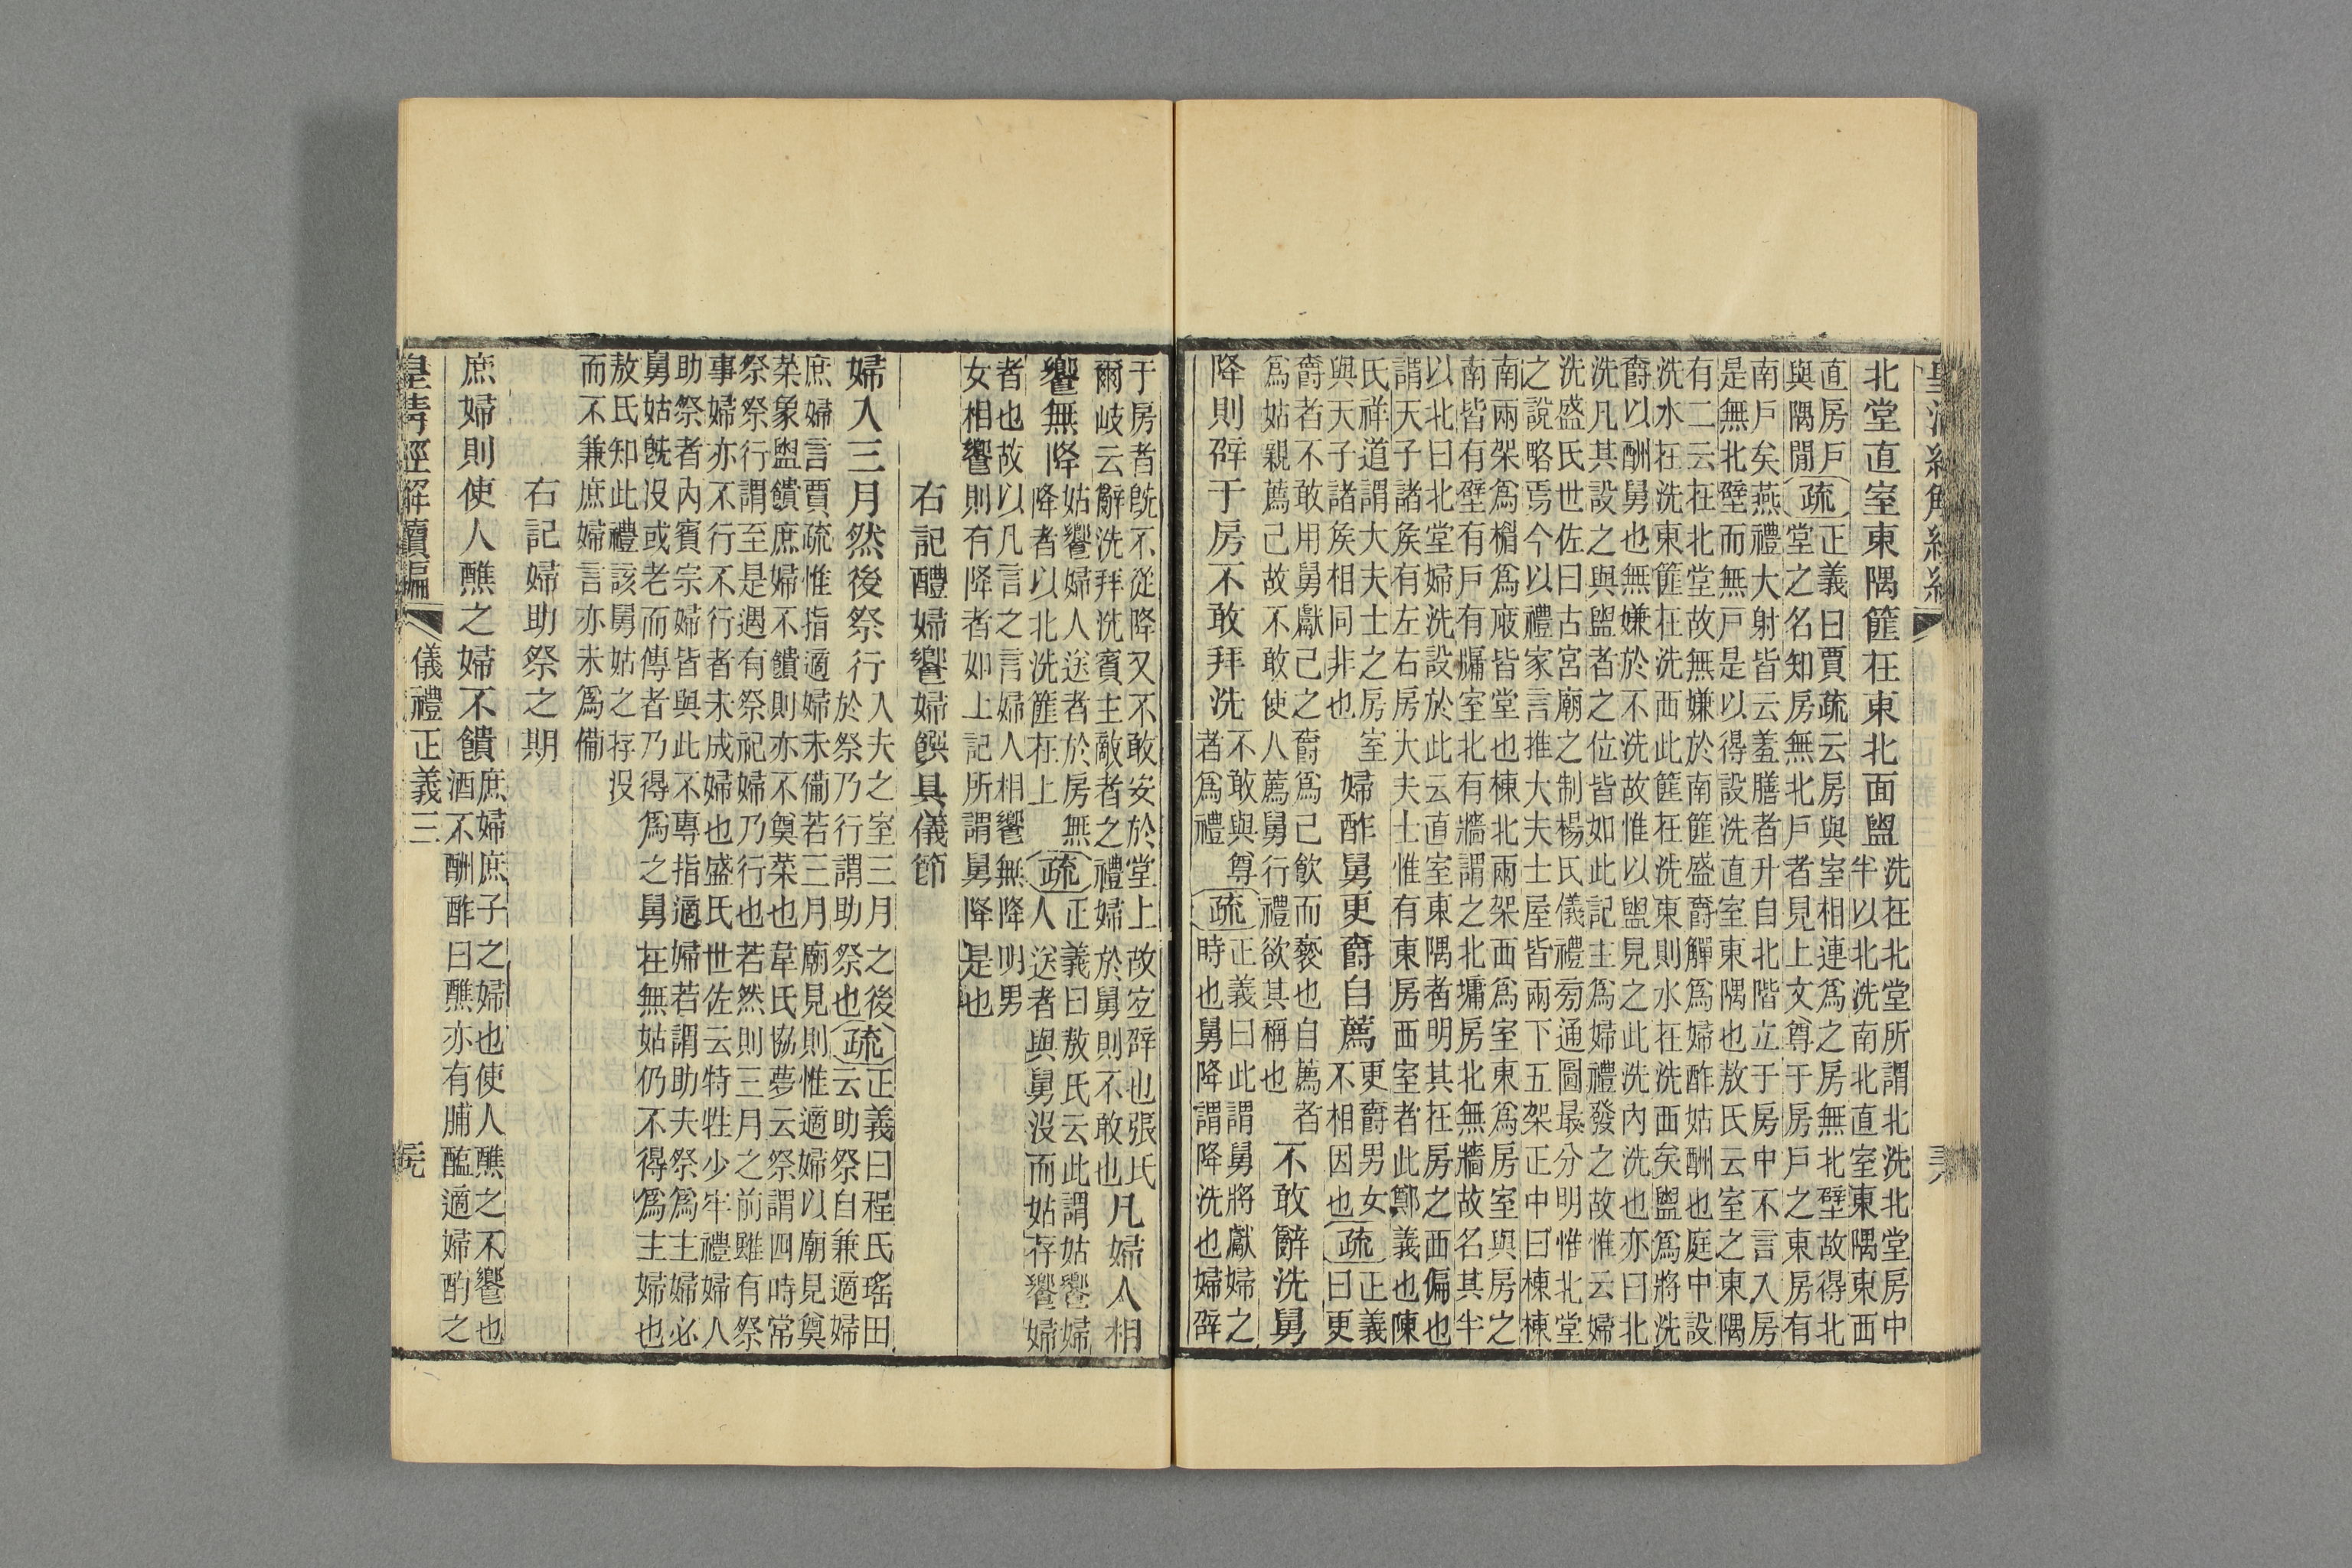 北堂直室東隅篚在東北面盥
洗在北堂所謂北洗北堂房中
半以北洗南北直室東隅東西
直房戶
與隅閒
疏
正義曰賈疏云房與室相連爲之房無北壁故得北
堂之名知房無北戶者見上文尊于房戶之東房有
南戶矣燕禮大射皆云羞膳者升自北階立于房中不言入房
是無北壁而無戶是以得設洗直室東隅也敖氏云室之東隅
有二云在北堂故無嫌於南篚盛爵觶爲婦酢姑酬也庭中設
洗水在洗東篚在洗西此篚在洗東則水在洗西矣盥爲將洗
爵以酬舅也無嫌於不洗故惟以盥見之此洗內洗也亦曰北
洗凡其設之與盥者之位皆如此記主爲婦禮發之故惟云婦
洗盛氏世佐曰古宮廟之制楊氏儀禮旁通圖最分明惟北堂
之說略焉今以禮家言推大夫士屋皆兩下五架正中曰棟棟
南兩架爲楣爲廄皆堂也棟北兩架西爲室東爲房室與房之
南皆有壁有戶有牖室北有牆謂之北墉房北無牆故名其半
以北曰北堂婦洗設於此云直室東隅者明其在房之西偏也
謂天子諸矦有左右房大夫士惟有東房西室者此鄭義也陳
氏祥道謂大夫士之房室
與天子諸矦相同非也
婦酢舅更爵自薦
更爵男女
不相因也
疏
正義
曰更
爵者不敢用舅獻己之爵爲己飲而褻也自薦者
爲姑親薦己故不敢使人薦舅行禮欲其稱也
不敢辭洗舅
降則辟于房不敢拜洗
不敢與尊
者爲禮
疏
正義曰此謂舅將獻婦之
時也舅降謂降洗也婦辟
于房者旣不從降又不敢安於堂上故宐辟也張氏
爾岐云辭洗拜洗賓主敵者之禮婦於舅則不敢也
凡婦人相
饗無降
姑饗婦人送者於房無
降者以北洗篚在上
疏
正義曰敖氏云此謂姑饗婦
人送者與舅沒而姑存饗婦
者也故以凡言之言婦人相饗無降明男
女相饗則有降者如上記所謂舅降是也
右記醴婦饗婦饌具儀節
婦入三月然後祭行
入夫之室三月之後
於祭乃行謂助祭也
疏
正義曰程氏瑤田
云助祭自兼適婦
庶婦言賈疏惟指適婦未備若三月廟見則惟適婦以廟見奠
菜象盥饋庶婦不饋則亦不奠菜也韋氏協夢云祭謂四時常
祭祭行謂至是遇有祭祀婦乃行也若然則三月之前雖有祭
事婦亦不行不行者未成婦也盛氏世佐云特牲少牢禮婦人
助祭者內賓宗婦皆與此不專指適婦若謂助夫祭爲主婦必
舅姑旣沒或老而傳者乃得爲之舅在無姑仍不得爲主婦也
敖氏知此禮該舅姑之存沒
而不兼庶婦言亦未爲備
右記婦助祭之期
庶婦則使人醮之婦不饋
庶婦庶子之婦也使人醮之不饗也
酒不酬酢曰醮亦有脯醢適婦酌之
皇清經解續編
儀禮正義三